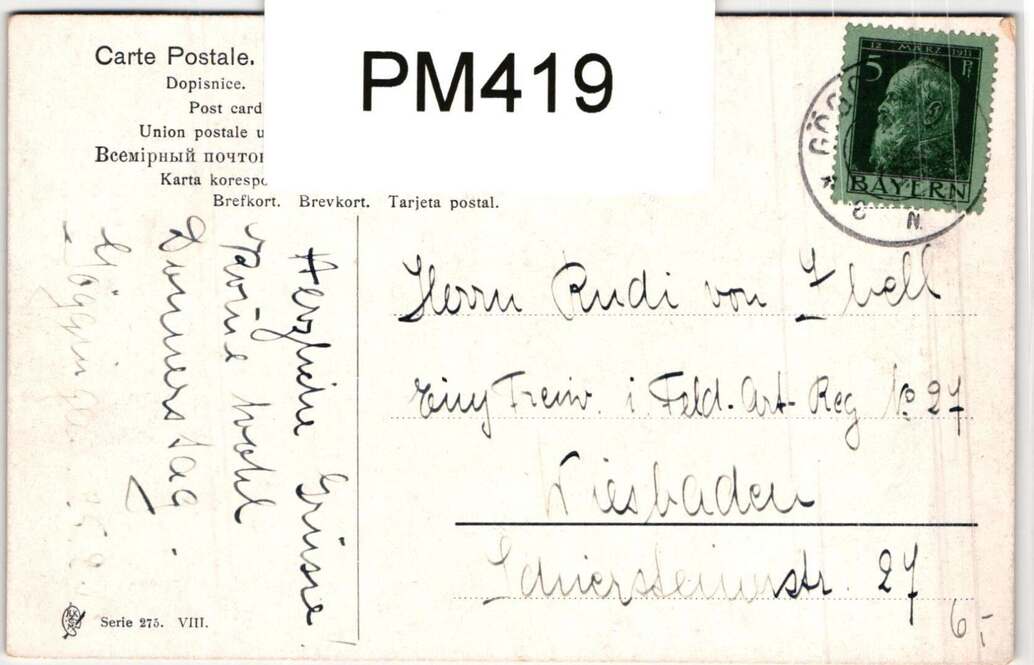 PM419
Carte Postale.
Dopisnice.
Post card
Union postale u
Всемірный почтов
Karta korespo
Brefkort. Brevkort. Tarjeta postal.
12 MÄRZ 1911
5 Pf
BAYERN
GÖGG
8 N.
Göggingen
Donnerstag.
wohl
Herzliche Grüsse!
Herrn Rudi von Ibell
Einj Freiw. i. Feld-Art-Reg No 27
Wiesbaden
Schiersteinerstr. 27
6,-
Serie 275. VIII.